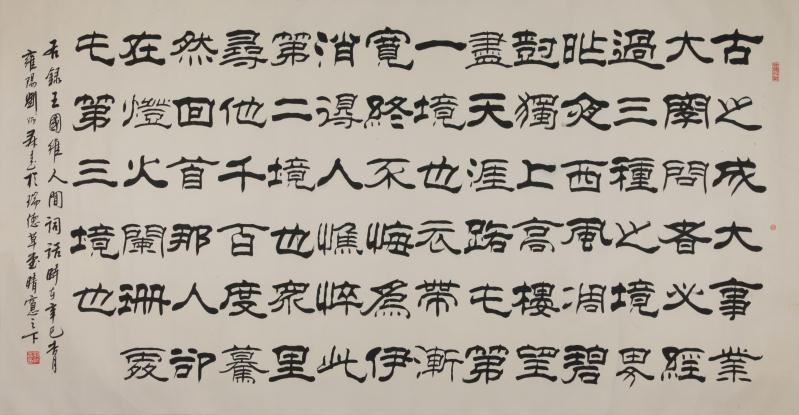 古之成大事業
大學問者必經
過三種之境界
昨夜西風凋碧
樹獨上高樓望
盡天涯路此第
一境也衣帶漸
寬終不悔為伊
消得人憔悴此
第二境也眾里
尋他千百度驀
然回首那人卻
在燈火闌珊處
此第三境也
右錄王國維人間詞話時在辛巳青月
雍陽劉於瑞德草堂晴窗之下